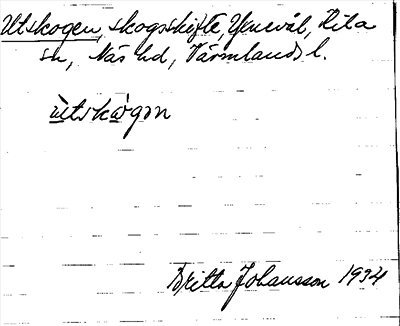 Utskogen, skogsskifte, Ynevål, Kila
sn, Näs hd, Värmlands l.
ùtskògən
Britta Johansson 1934